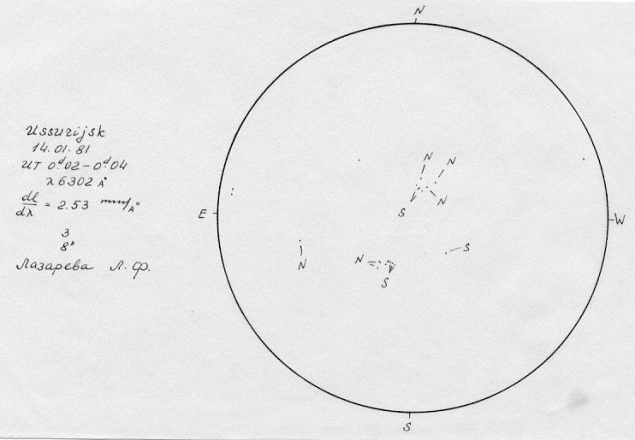 Ussurijsk
14.01.81
UT 0ᵈ02–0ᵈ04
λ 6302 Å
dl/dλ = 2.53 mm/Å
3
8ˢ
Лазарева Л.Ф.
N
N N
N
S
E
W
S
N
N
S
S